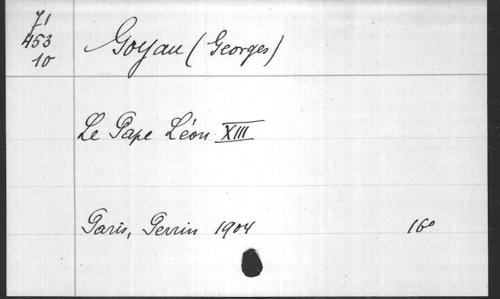 71
453
10
Goyau (Georges)
Le Pape Léon XIII
Paris, Perrin 1904 16°